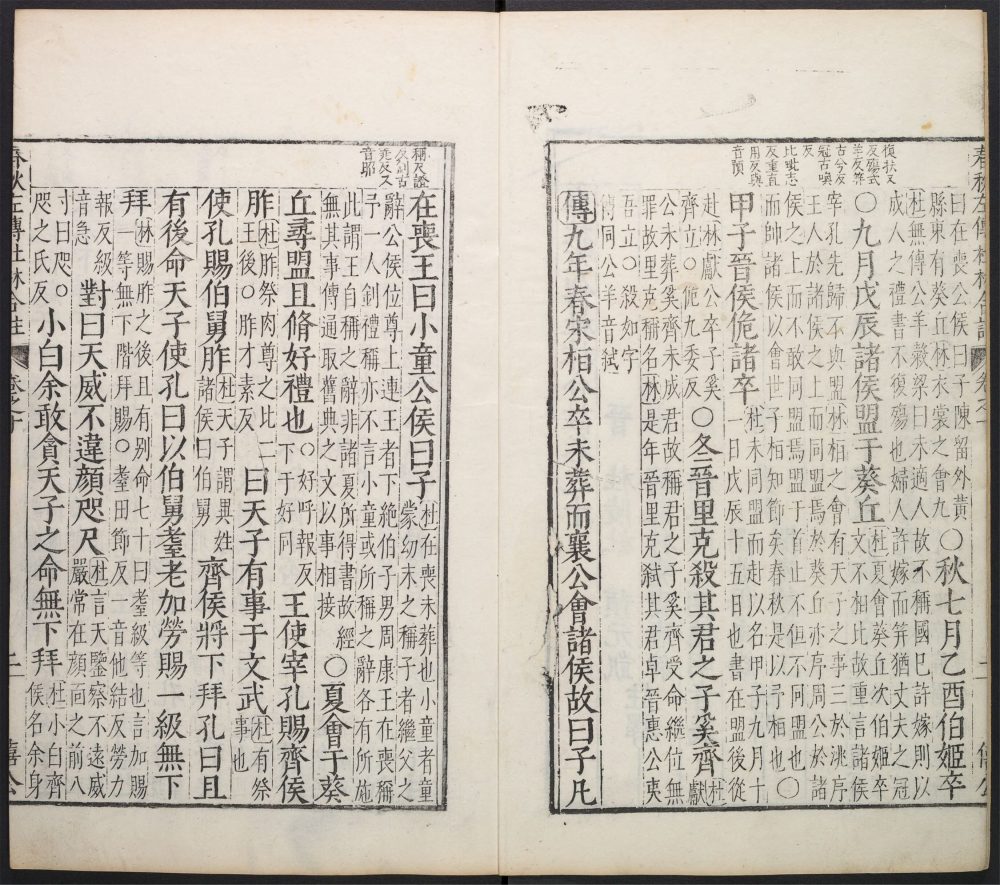 春秋左傳杜林合註　卷之十　二　僖公
復扶又
反殤式
羊反笄
古兮反
冠古喚
反
比毗志
反重直
用反與
音預
曰在喪公侯曰子陳留外黃
縣東有葵丘林衣裳之會九
○秋七月乙酉伯姬卒
杜無傳公羊穀梁曰未適人故不稱國已許嫁則以
成人之禮書不復殤也婦人許嫁而笄猶丈夫之冠
○九月戊辰諸侯盟于葵丘
杜夏會葵丘次伯姬卒
文不相比故重言諸侯
宰孔先歸不與盟林桓之會有天子之事三於洮序
王人於諸侯之上而同盟焉於葵丘亦序周公於諸
侯之上而不敢同盟焉盟于首止不但不同盟也○
而帥諸侯以會世子桓知節矣春秋是以予桓也
甲子晉侯佹諸卒
杜未同盟而赴以名甲子九月十
一日戊辰十五日也書在盟後從
赴林獻公卒子奚
齊立○佹九委反
○冬晉里克殺其君之子奚齊
杜
獻
公未葬奚齊未成君故稱君之子奚齊受命繼位無
罪故里克稱名林是年晉里克弒其君卓晉惠公夷
吾立○殺如字
傳同公羊音弒
傳九年春宋桓公卒未葬而襄公會諸侯故曰子凡
稱尺證
反釗古
堯反又
音耶
在喪王曰小童公侯曰子
杜在喪未葬也小童者童
蒙幼末之稱子者繼父之
辭公侯位尊上連王者下絶伯子男周康王在喪稱
予一人釗禮稱亦不言小童或所稱之辭各有所施
此謂王自稱之辭非諸夏所得書故經
無其事傳通取舊典之文以事相接
○夏會于葵
丘尋盟且脩好禮也
○好呼報反
下于好同
王使宰孔賜齊侯
胙
杜胙祭肉尊之比二
王後○胙才素反
曰天子有事于文武
杜有祭
事也
使孔賜伯舅胙
杜天子謂異姓
諸侯曰伯舅
齊侯將下拜孔曰且
有後命天子使孔曰以伯舅耋老加勞賜一級無下
拜
林賜胙之後且有別命七十曰耋級等也言加賜
一等無下階拜賜○耋田節反一音他結反勞力
報反級
音急
對曰天威不違顏咫尺
杜言天鑒察不遠威
嚴常在顏面之前八
寸曰咫○
咫之氏反
小白余敢貪天子之命無下拜
杜小白齊
侯名余身
春秋左傳杜林合註　卷之十　二　僖公